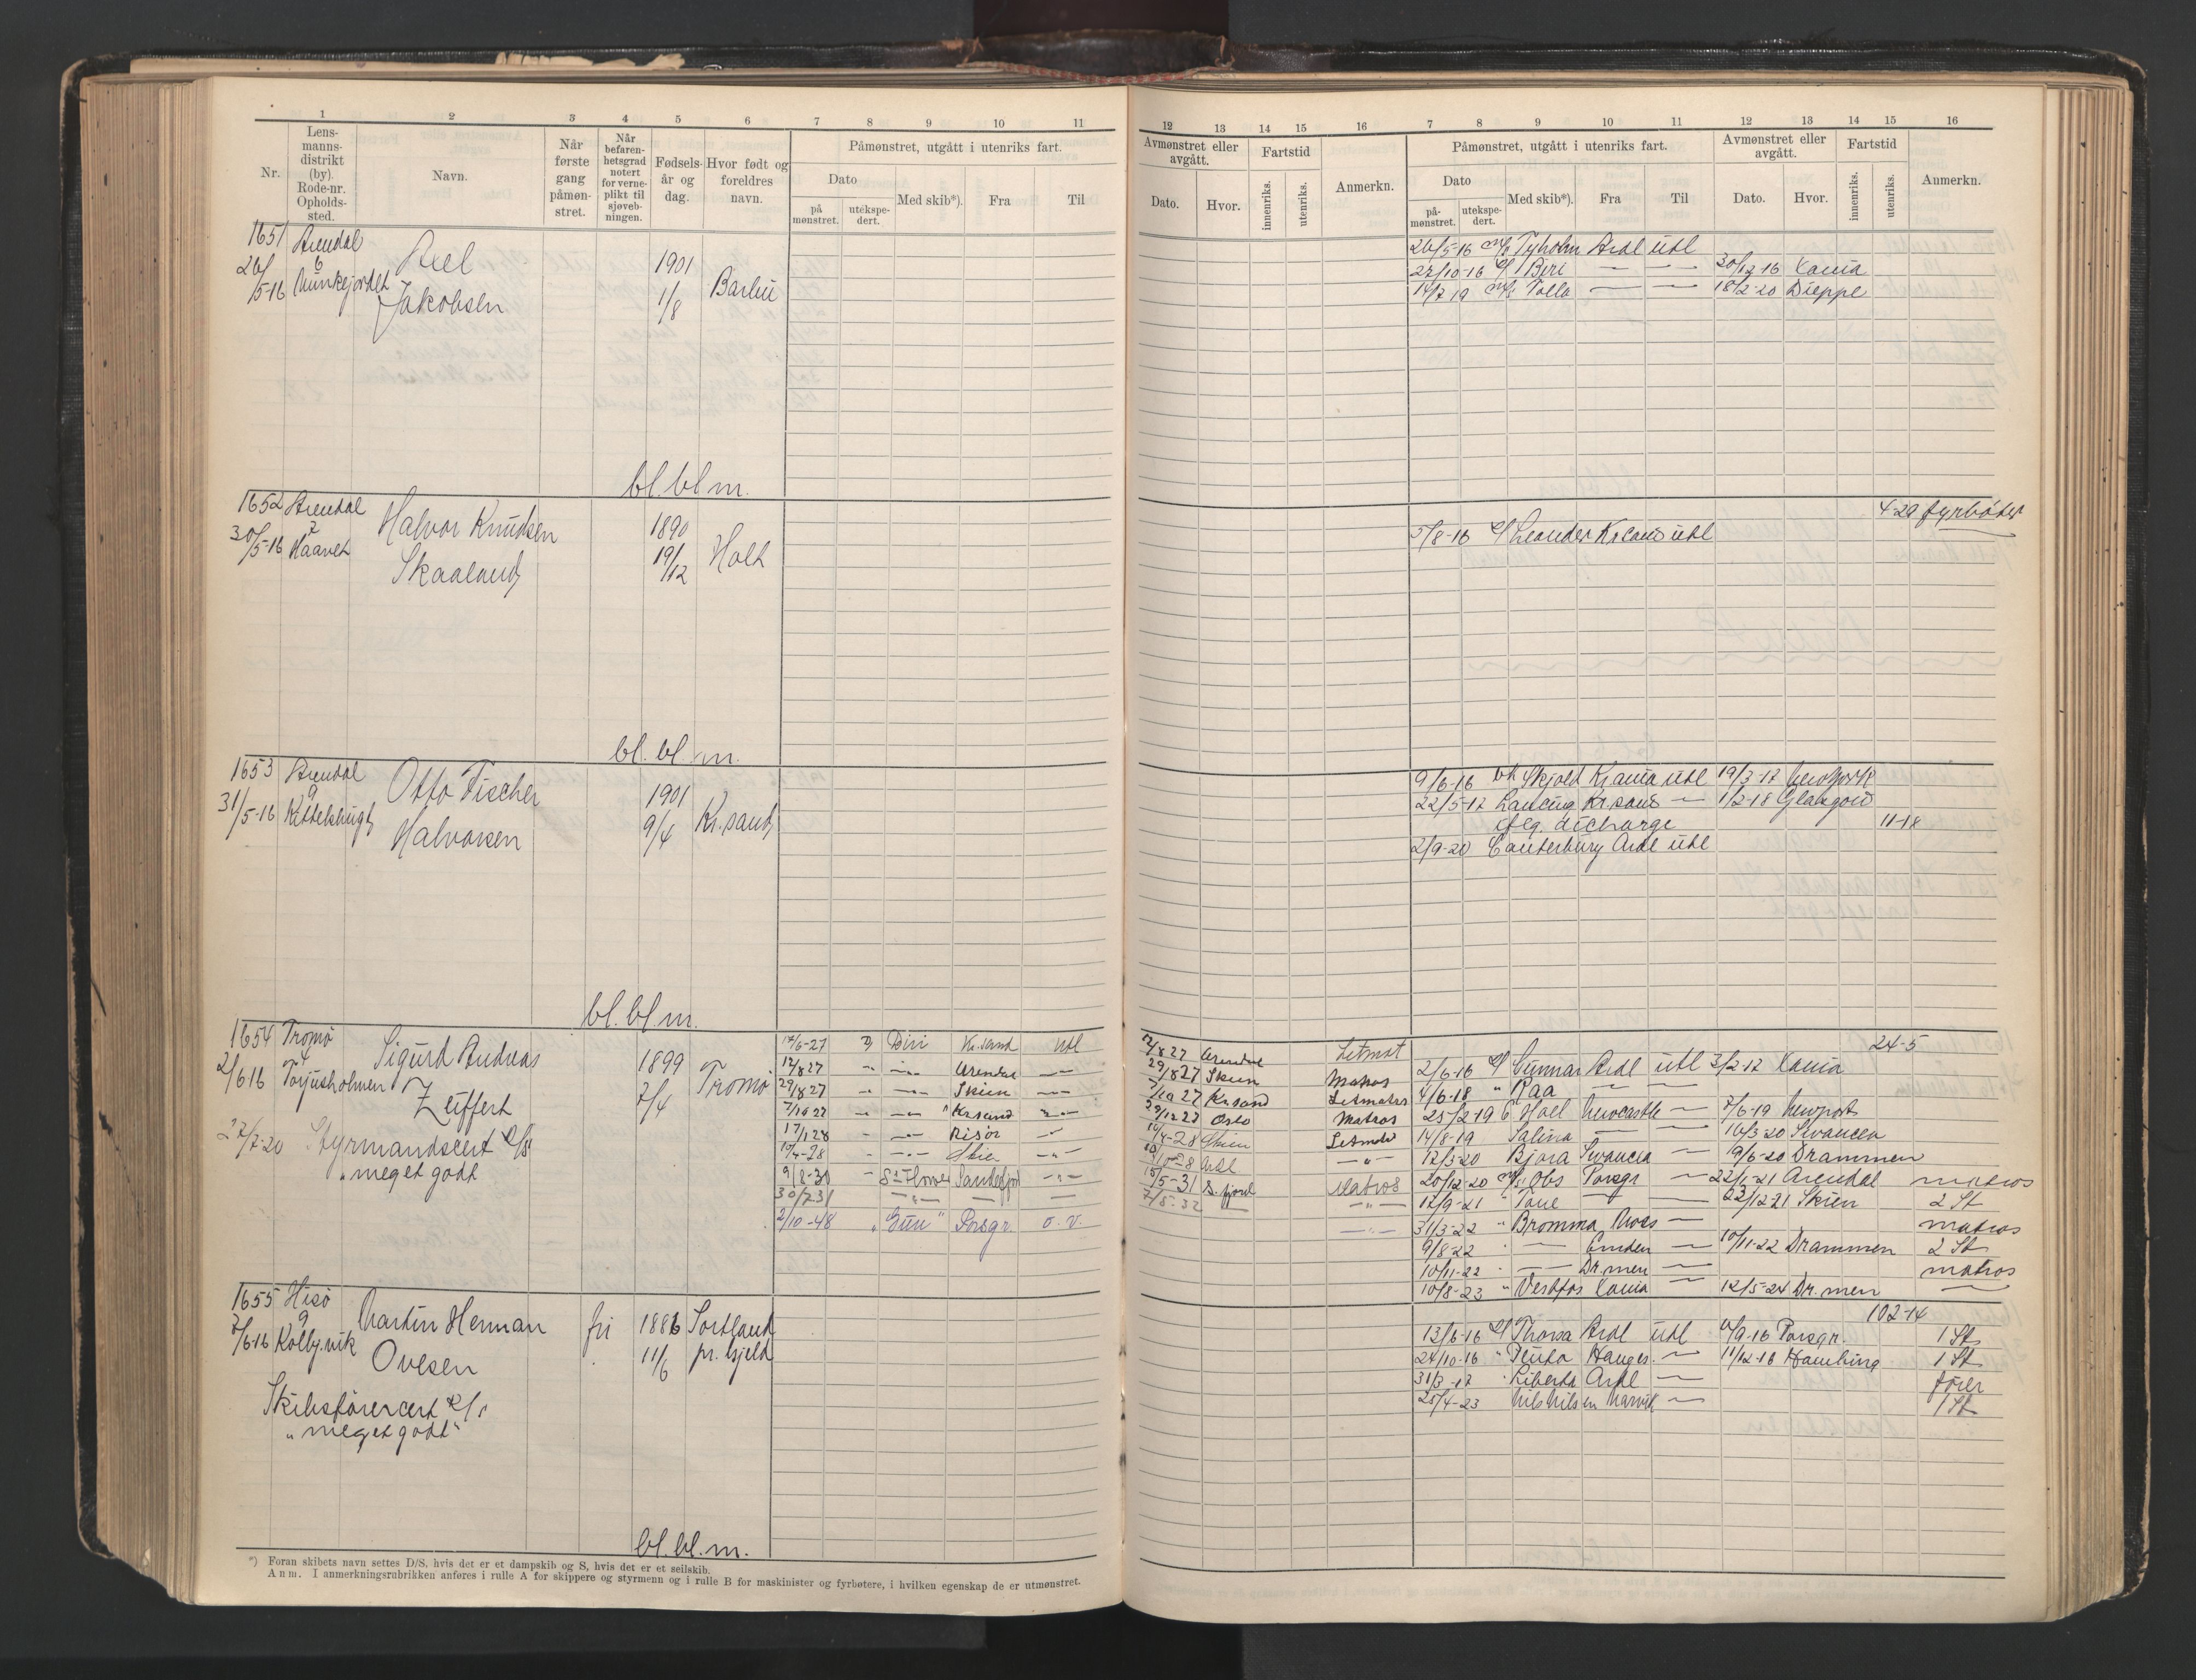 1 2 3 4 5 6 7 8 9 10 11
Nr.
Lens-
manns-
distrikt
(by).
Rode-nr.
Opholds-
sted.
Navn.
Når
første
gang
påmøn-
stret.
Når
befaren-
hetsgrad
notert
for verne-
plikt til
sjøveb-
ningen.
Fødsels-
år og
dag.
Hvor født og
foreldres
navn.
Påmønstret, utgått i utenriks fart.
Dato
på
mønstret.
utekspe-
dert.
Med skib*).
Fra
Til
1651 Arendal
6
26/5-16
Axel
Jakobsen
1901
1/8
Barbu
bl. bl m.
1652 Arendal
2
30/5-16
Halvor Knudsen
Skaaland
1890
19/12
Holt
bl. bl. m.
1653 Arendal
9
31/5-16
Otto Fischer
Halvorsen
1901
9/4
Kr.sand
bl. bl. m.
1654 Tromø
4
2/6 16 Torjusholmen
Sigurd Andreas
Zeiffert
1899
7/4
Tromø
27/7-20 Styrmandscert
"meget godt
Biri Kr.sand Utl
12/8 27 Arendal
29/8 27 Skien
7/10 27 Kr.sand
17/1 28 Risør
10/4-28 Skien
9/8-30 Sandefjord
30/7 31
2/10-48 "Gun" Porsgr. o. v.
1655 Hisø
9
7/6-16 Kolbj.vik
Martin Herman
Ovesen
fri
1886
11/6
Sortland
pr. gjeld
Skibsførercert
"meget godt"
bl. bl. m.
*) Foran skibets navn settes D/S, hvis det er et dampskib og S, hvis det er et seilskib.
Anm. I anmerkningsrubrikken anføres i rulle A for skippere og styrmenn og i rulle B for maskinister og fyrbøtere, i hvilken egenskap de er utmønstret.
12 13 14 15 16 7 8 9 10 11 12 13 14 15 16
Avmønstret eller
avgått.
Dato.
Hvor.
Fartstid
innenriks.
utenriks.
Anmerkn.
Påmønstret, utgått i utenriks fart.
Dato
på-
mønstret.
utekspe-
dert.
Med skib*).
Fra
Til
Avmønstret eller
avgått.
Dato.
Hvor.
Fartstid
innenriks.
utenriks.
Anmerkn.
26/5-16 Tyholm Ardl utl
27/10-16 Biri — — 30/12-16 Kania
14/7 19 Tolla — — 18/2-20 Dieppe
4-29 fyrbøter
5/8-16 Leander utl
9/6-16 Skjold Kr.ania utl 19/3-17 New York
22/5-17 Lancing Kr.sand — 1/2-18 Glasgow
iflg. dicharge 11-18
2/9-20 Canterbury Ardl utl
24-5
12/8 27 Arendal Letmat
29/8 27 Skien Matros
7/10 27 Kr.sand Letmatr
29/12 27 Oslo Matros
10/4-28 Skien Letmatr
Ardl —"—
15/5-31 S. fjord Matros
7/5-32 — —"—
2/6-16 Gunnar Ardl utl 3/2-17 Kania
4/6-18 " Raa — —
25/2-19 Hoel Newcastle — 7/6-19 Newport
14/8-19 Salina — — 16/3-20 Swancea
12/3-20 Bjora Swancea — 9/6-20 Drammen
20/12-20 Obs Porsgr — 22/1-21 Arendal matros
12/9-21 " Tone — 22/12 21 Skien 2 St
31/3-22 " Bromma Moss — matros
9/8-22 — Emden — 10/11-22 Drammen 2 St
10/11-22 — Dr.men — matros
10/8-23 " Vestfos Kania — 12/5-24 Dr.men —
102-14
13/6-16 Thorsa Ardl utl 6/9-16 Porsgr. 1 St
24/10-16 " Hauges. — 11/12-16 Hamburg 1 St
31/3-17 Liberta Ardl — fører
25/4-23 Nils Nilsen Narvik — 1 St